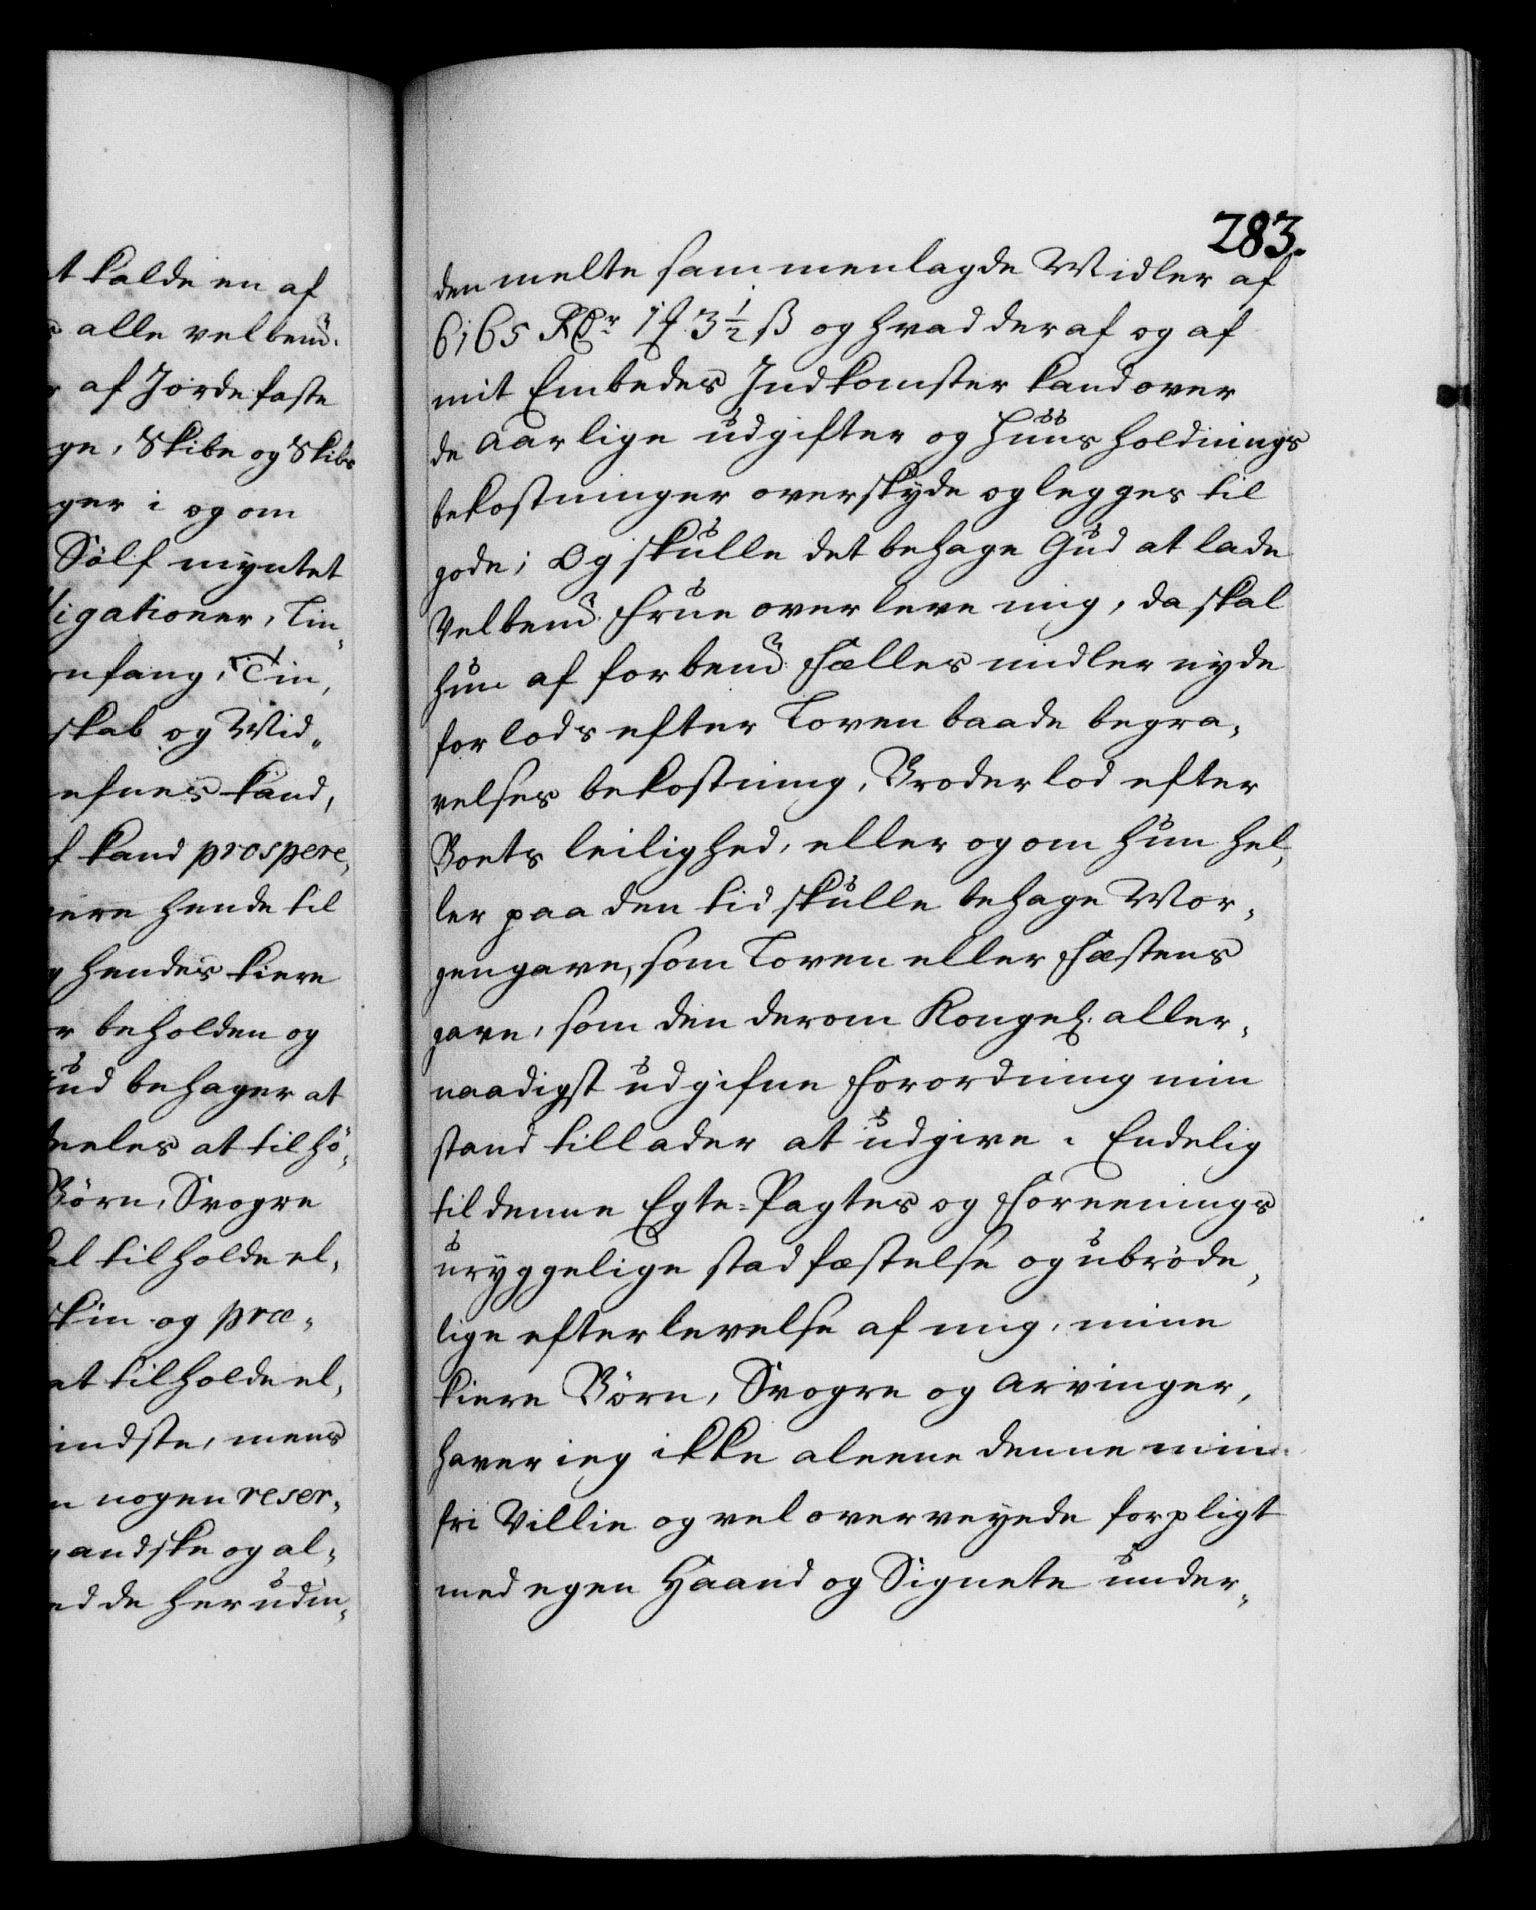 t kalde en af
s alle velbemt.
r af Jorde faste
ge, Skibe og Skibs
ger i og om
Sölf myntet
ligationer, Lin„
nfang, Tin,
skab og Mid„
nefnes kand,
f kand prospere„
være hende til
g hendes kiere
r beholden og
Gud behager at
deeles at tilhö„
Börn, Svogre
al tilholde el„
skin og præ„
at tilholde el„
mindste, mens
n nogen reser„
gandske og al„
ed de herudin„
283.
den melte sammenlagde Midler af
6165 Rdr 1 ƒ 3 1/2 ß og hvad deraf og af
mit Embedes Indkomster kand over
de aarlige udgifter og Huusholdnings
bekostninger overskyde og legges til
gode; Og skulle det behage Gud at lade
Velbemt. Frue overleve mig, da skal
hun af forbemt. Fælles midler nyde
forlods efter Loven baade begra„
velses bekostning, Broderlod efter
Boets leilighed, eller og om hun hel„
ler paa den tid skulle behage Mor„
gengave, som Loven eller Fæstens
gave, som den derom Kongel. aller„
naadigst udgifne Forordning min
stand tillader at udgive. Endelig
til denne Egte-Pagtes og Foreenings
uryggelige stadfæstelse og ubröde„
lige efterlevelse af mig, mine
kiere Börn, Svogre og Arvinger,
haver ieg ikke aleene denne min
fri Villie og vel overveyede forpligt
med egen Haand og Signete under„